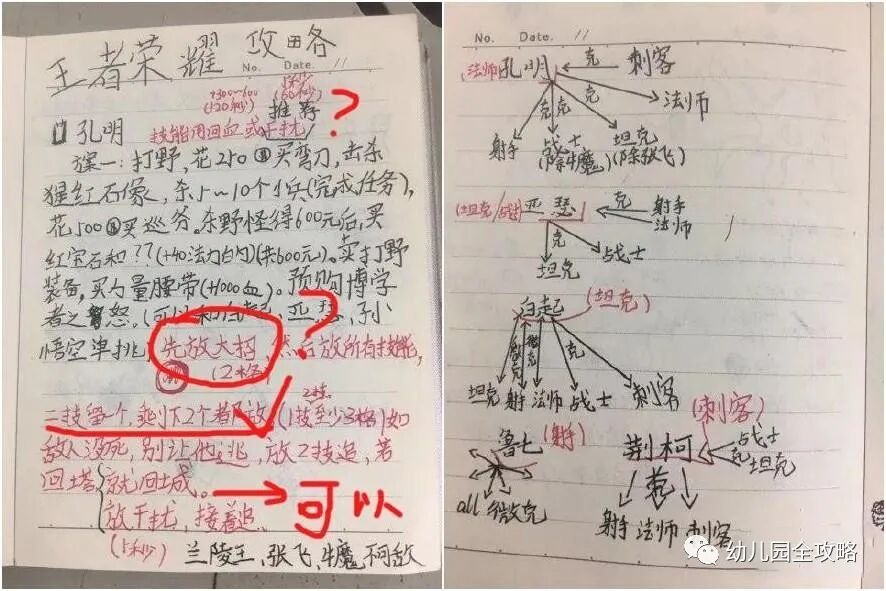 王者荣耀 攻略
No. Date. 11
+300~600
(120秒) (60秒)
推荐 ?
孔明 技能用回血或干扰
方案一:打野,花250买弯刀,击杀
猩红石像,杀5~10个小兵(完成任务),
花500买巡务,杀野怪得600元后,买
红宝石和??(+40法力白勺)(共600元)。卖打野
装备,买力量腰带(+1000血)。预购博学
者之怒。(可以和白起、亚瑟,孙
悟空单挑,先放大招,然后放所有技能, ?
(2格)
二技留一个,剩下2个都放(1技至少3格)如
敌人没死,别让他逃,放2技追,若
回塔,就回城。 可以
放干扰,接着追。
(1秒)
兰陵王、张飞、牛魔,不可敌
No. Date. 11
(法师)孔明 克 刺客
克 克 克 法师
射手 战士 坦克
(除牛魔) (除张飞)
(坦克/战士)亚瑟 克 射手
法师
克 战士
坦克
白起 (坦克)
微克 微克 克
坦克 射手 法师 战士 刺客
鲁七 (射手)
all 微克
(刺客)
荆柯 战士
克 坦克
克
射手 法师 刺客
幼儿园全攻略